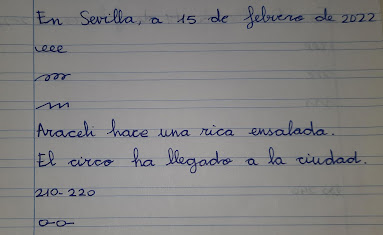 En Sevilla, a 15 de febrero de 2022
eee
Araceli hace una rica ensalada.
El circo ha llegado a la ciudad.
210-220